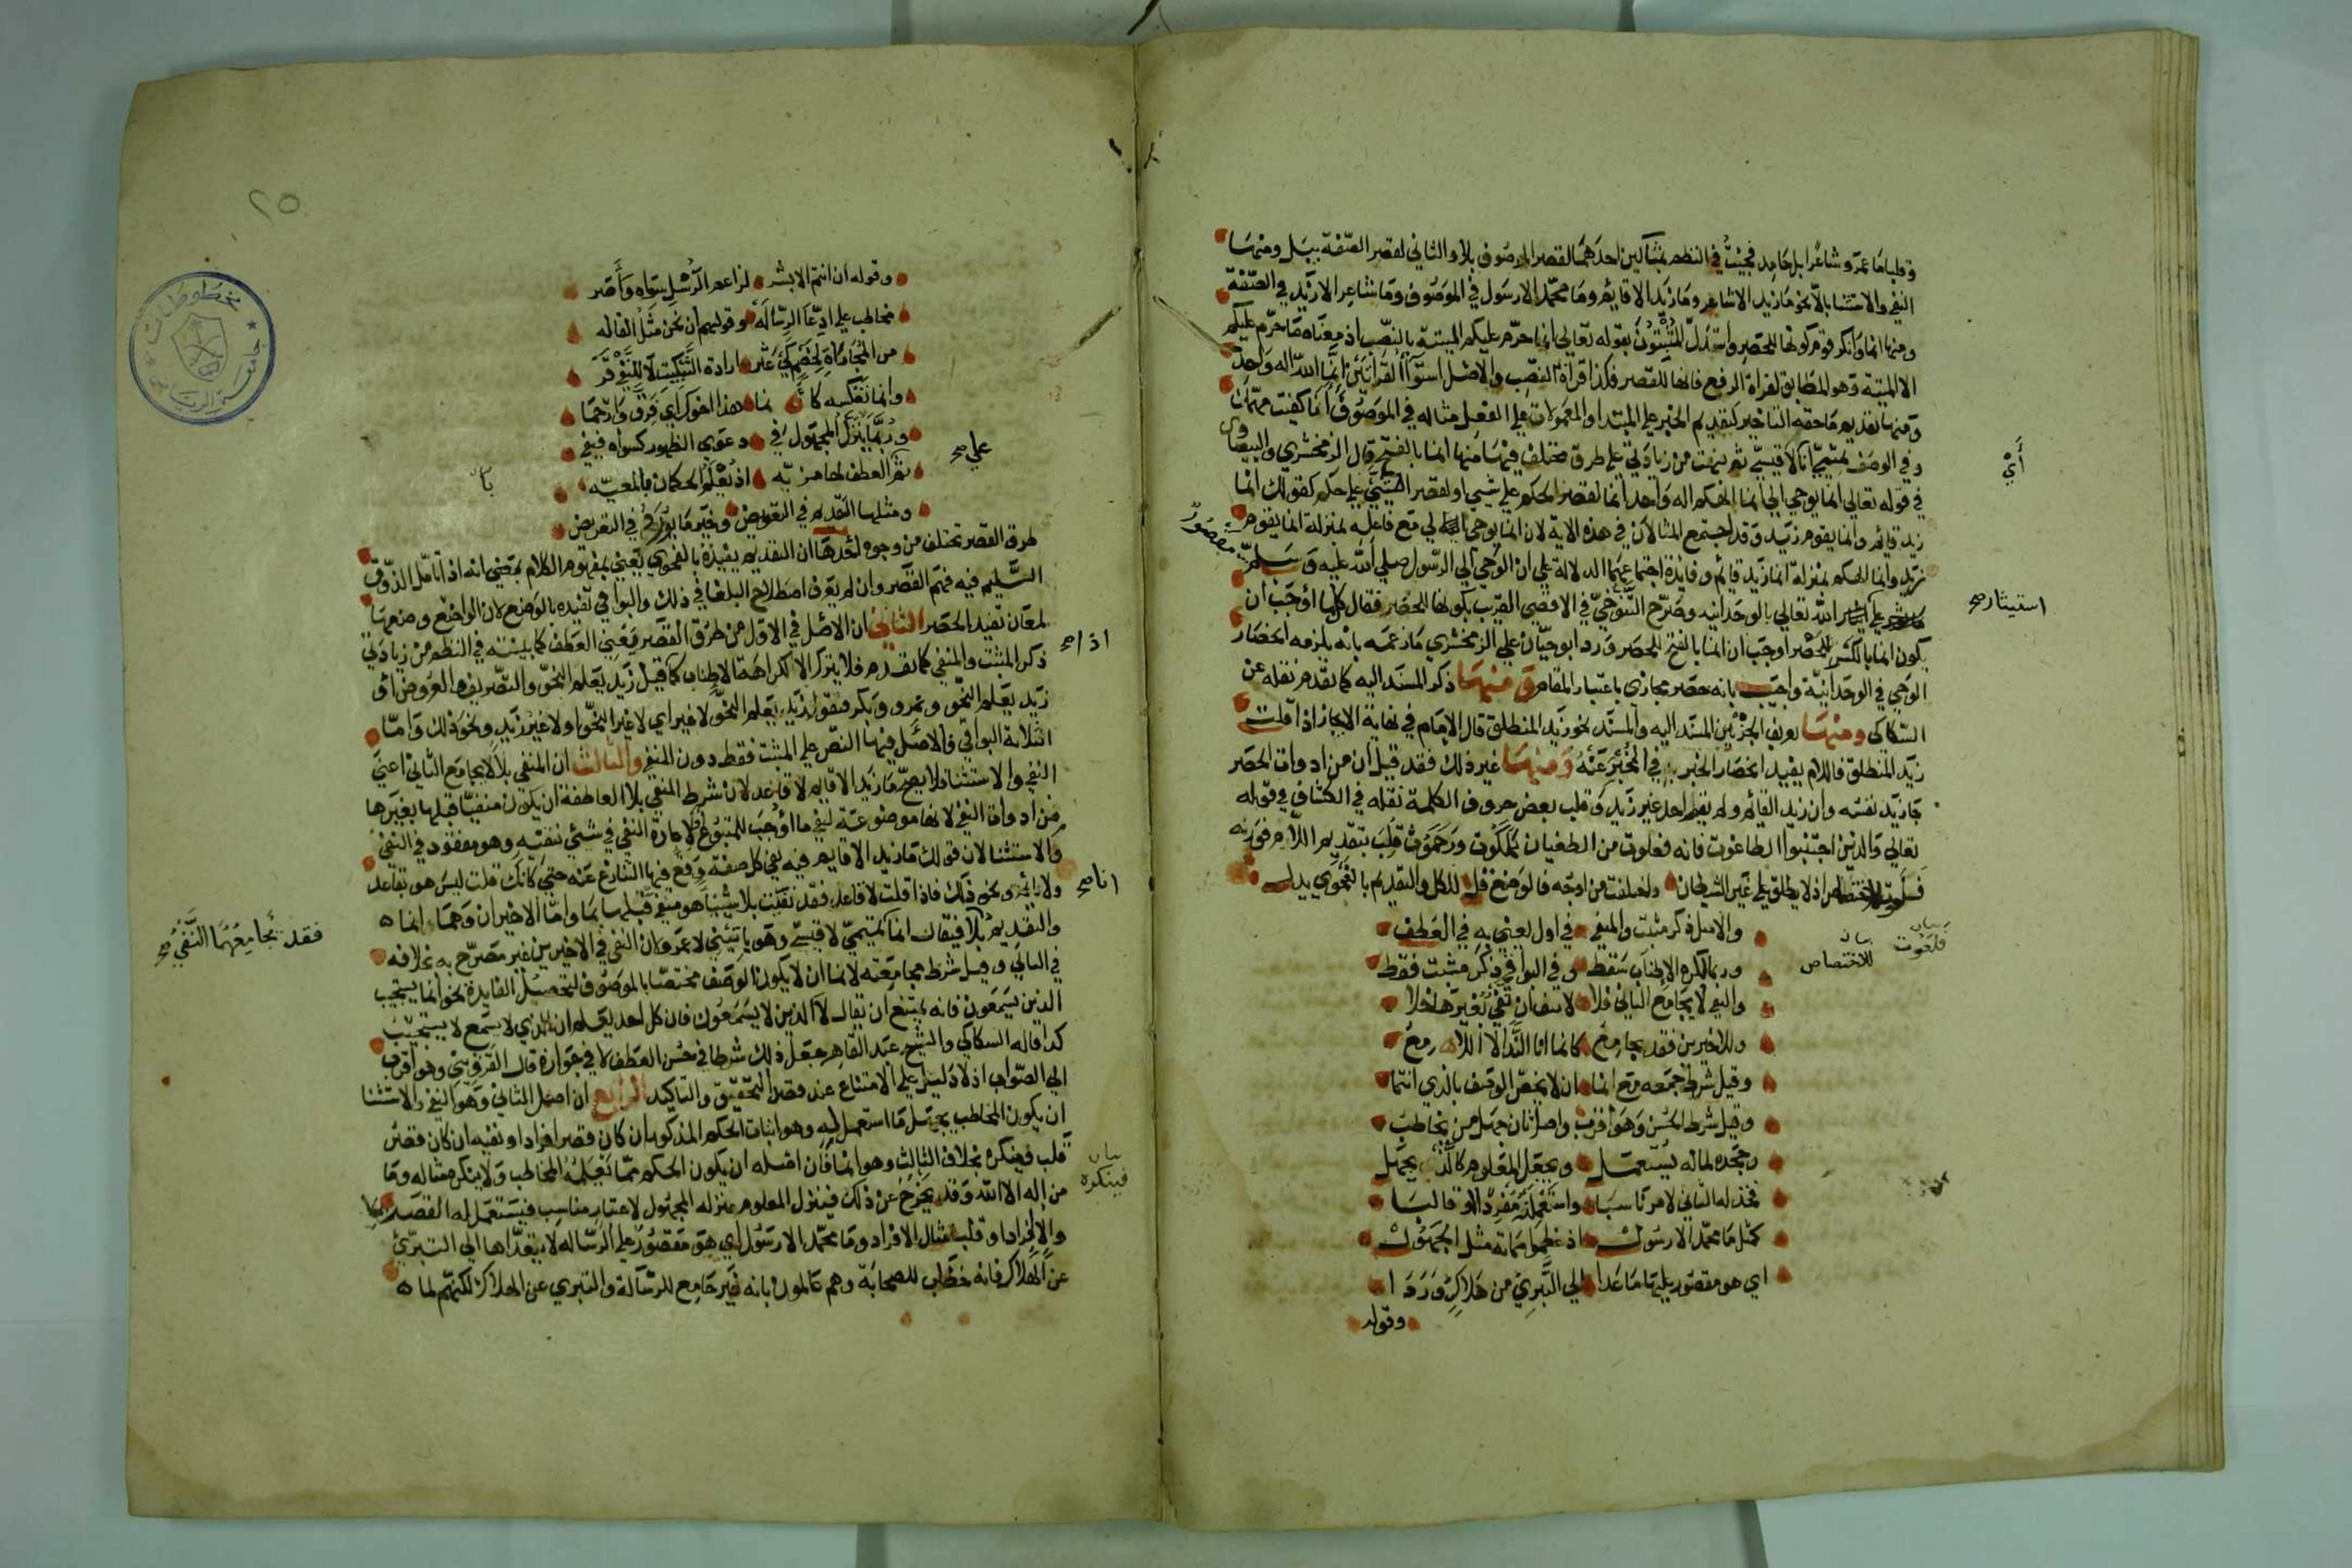 وقلبا ما عمرو شاعرا بل حامد فجيئت في النظم بمثالين احدهما لقصر الموصوف بلا والثاني لقصر الصفة ببل ومنها
النفي والاستثنا بالا نحو ما زيد الا شاعر وما زيد الا قايم وما محمد الا رسول في الموصوف وما شاعر الا زيد في الصفة
ومنها انما وانكر قوم كونها للحصر واستدل المثبتون بقوله تعالى انما حرم عليكم الميتة بالنصب اذ معناه ما حرم عليكم
الا الميتة وهو المطابق لقراة الرفع فانها للقصر فكذا قراة النصب والاصل استوا القراتين انما الله اله واحد
ومنها تقديم ما حقه التاخير كتقديم الخبر على المبتدا والمعمولات على الفعل مثاله في الموصوف انا كفيت مهمك
وفي الوصف تميمي انا لا قيسي ثم نبهت من زيادتي على طرق مختلف فيها منها انما بالفتح قال الزمخشري والبيضاوي
في قوله تعالى انما يوحي الي انما الهكم اله واحد انما لقصر الحكم على شيء او لقصر الشيء على حكم كقولك انما
زيد قايم وانما يقوم زيد وقد اجتمع المثالان في هذه الاية لان انما يوحي الي مع فاعله بمنزلة انما يقوم
زيد وانما الهكم بمنزلة انما زيد قائم وفايدة اجتماعهما الدلالة على ان الوحي الى الرسول صلى الله عليه وسلم مقصور
على الله تعالى بالوحدانيه وصرح التنوخي في الاقصى القريب بكونها للحصر فقال كلما اوجب ان
يكون انما بالكسر للحصر اوجب ان انما بالفتح للحصر ورد ابو حيان على الزمخشري ما زعمه بانه يلزمه انحصار
الوحي في الوحدانية واجيب بانه حصر مجازي باعتبار المقام ومنها ذكر المسند اليه كما تقدم نقله عن
السكاكي ومنها تعريف الجزئين المسند اليه والمسند نحو زيد المنطلق قال الامام في نهاية الايجاز اذا قلت
زيد المنطلق فاللام يفيد انحصار الخبر به في المخبر عنه ومنها غير ذلك فقد قيل ان من ادوات الحصر
جا زيد نفسه وان زيد القائم ولم يقم احد غير زيد وقلب بعض حروف الكلمة نقله في الكشاف في قوله
تعالى والذين اجتنبوا الطاغوت فانه فعلوت من الطغيان كملكوت ورحموت قلب بتقديم اللام فوزنه
فلعوت للاختصاص اذ لا يطلق على غير الشيطان واختلفت من اوجه فالوضع في للكل والتقديم بالفحوى يدل
والاصل ذكر مثبت والمنفي في اول يعني به في العطف
وربما لكره الاطناب سقط وفي البواقي ذكر مثبت فقط
والنفي لا يجامع الثاني فلا لا تنف ان نفي بغيرها خلا
وللاخيرين فقد يجامع كانما انا الندا لا اللامع
وقيل شرط جمعه مع انما ان لا يخص الوصف بالذي انتما
وقيل شرط الحسن وهو اقرب واصل ثان جهل من يخاطب
وجحده لما له يستعمل ويجعل المعلوم كالذي يجهل
فخذ له الثاني لامر ناسبا واستعملنه مفردا او قالبا
كمثل ما محمد الا رسول اذ عظموا مماته مثل الجهول
اي هو مقصور عليها ما عدا الى التبري من هلاك وردا
وقوله
أي
استيثار صح
بيان
فلعوت
بيان
للاختصاص
٢٥
مخطوطات
جامعة الرياض
وقوله ان انتم الا بشر لزاعم الرسل سواه وأصر
مخاطب على ادعا الرساله وقولهم ان نحن مثل القاله
من المجاراة لخصم كي عثر ارادة التبكيت لا للنفي قر
وانما تعكسه كانما هذا اخوك اي فرق وارحما
وربما ينزل المجهول في دعوى الظهور كسواه فيفي
ثم العطف لها مزيه اذ يعلم الحكمان بالمعيه
ومثلها التقديم في التعويض وخير ما يورد في التعريض
طرق القصر تختلف من وجوه احدها ان التقديم يفيده بالفحوى يعني بمفهوم الكلام بمعنى انه اذا تامل الذوق
السليم فيه فهم القصر وان لم يعرف اصطلاح البلغا في ذلك والبواقي تفيده بالوضع لان الواضع وضعها
لمعان تفيد الحصر الثاني ان الاصل في الاول من طرق القصر يعني العطف كما بينته في النظم من زيادتي
ذكر المثبت والمنفي كما تقدم فلا يترك الا لكراهة الاطناب كما قيل زيد يعلم النحو والتصريف والعروض او
زيد يعلم النحو وعمرو وبكر فتقول زيد يعلم النحو لا غير اي لا غير النحو او لا غير زيد ونحو ذلك واما
الثلاثة البواقي فالاصل فيها النص على المثبت فقط دون المنفي والثالث ان المنفي بلا لا يجامع الثاني اعني
النفي والاستثنا فلا يصح ما زيد الا قايم لا قاعد لان شرط المنفي بلا العاطفة ان يكون منفيا قبلها بغيرها
من ادوات النفي لانها موضوعة لنفي ما اوجب للمتبوع لا لاعادة النفي في شيء نفيته وهو مفقود في النفي
والاستثنا لان قولك ما زيد الا قايم فيه نفي كل صفة وقع فيها التنازع عنه حتى كانك قلت ليس هو بقاعد
ولا نائم ونحو ذلك فاذا قلت لا قاعد فقد نفيت بلا شيئا هو منفي قبلها بما واما الاخيران وهما انما
والتقديم فيقال انما تميمي لا قيسي وهو ياتيني لا عمرو لان النفي في الاخيرين غير مصرح به بخلافه
في الثاني وقيل شرط مجامعته لانما ان لا يكون الوصف مختصا بالموصوف لتحصيل الفايدة نحو انما يستجيب
الذين يسمعون فانه يمتنع ان يقال لا الذين لا يسمعون فان كل احد يعلم ان الذي لا يسمع لا يستجيب
كذا قاله السكاكي والشيخ عبد القاهر جعل ذلك شرطا في حسن العطف لا في جوازه قال القزويني وهو اقرب
الى الصواب اذ لا دليل على الامتناع عند قصد التحقيق والتاكيد الرابع ان اصل الثاني وهو النفي والاستثنا
ان يكون المخاطب يجهل ما استعمل له وهو اثبات الحكم المذكور ان كان قصر افراد او نفيه ان كان قصر
قلب فينكره بخلاف الثالث وهو انما فان اصله ان يكون الحكم مما يعلمه المخاطب ولا ينكره مثاله وما
من اله الا الله وقد يخرج عن ذلك فينزل المعلوم منزلة المجهول لاعتبار مناسب فيستعمل له القصر
والافراد او قلب مثال الافراد وما محمد الا رسول اي هو مقصور على الرسالة لا يتعداها الى التبري
عن الهلاك فانه خطاب للصحابة وهم عالمون بانه غير جامع للرسالة والتبري عن الهلاك لكنهم لما
على صح
بان
اذا صح
انا صح
فقد يجامعهما النفي صح
بيان
فينكره